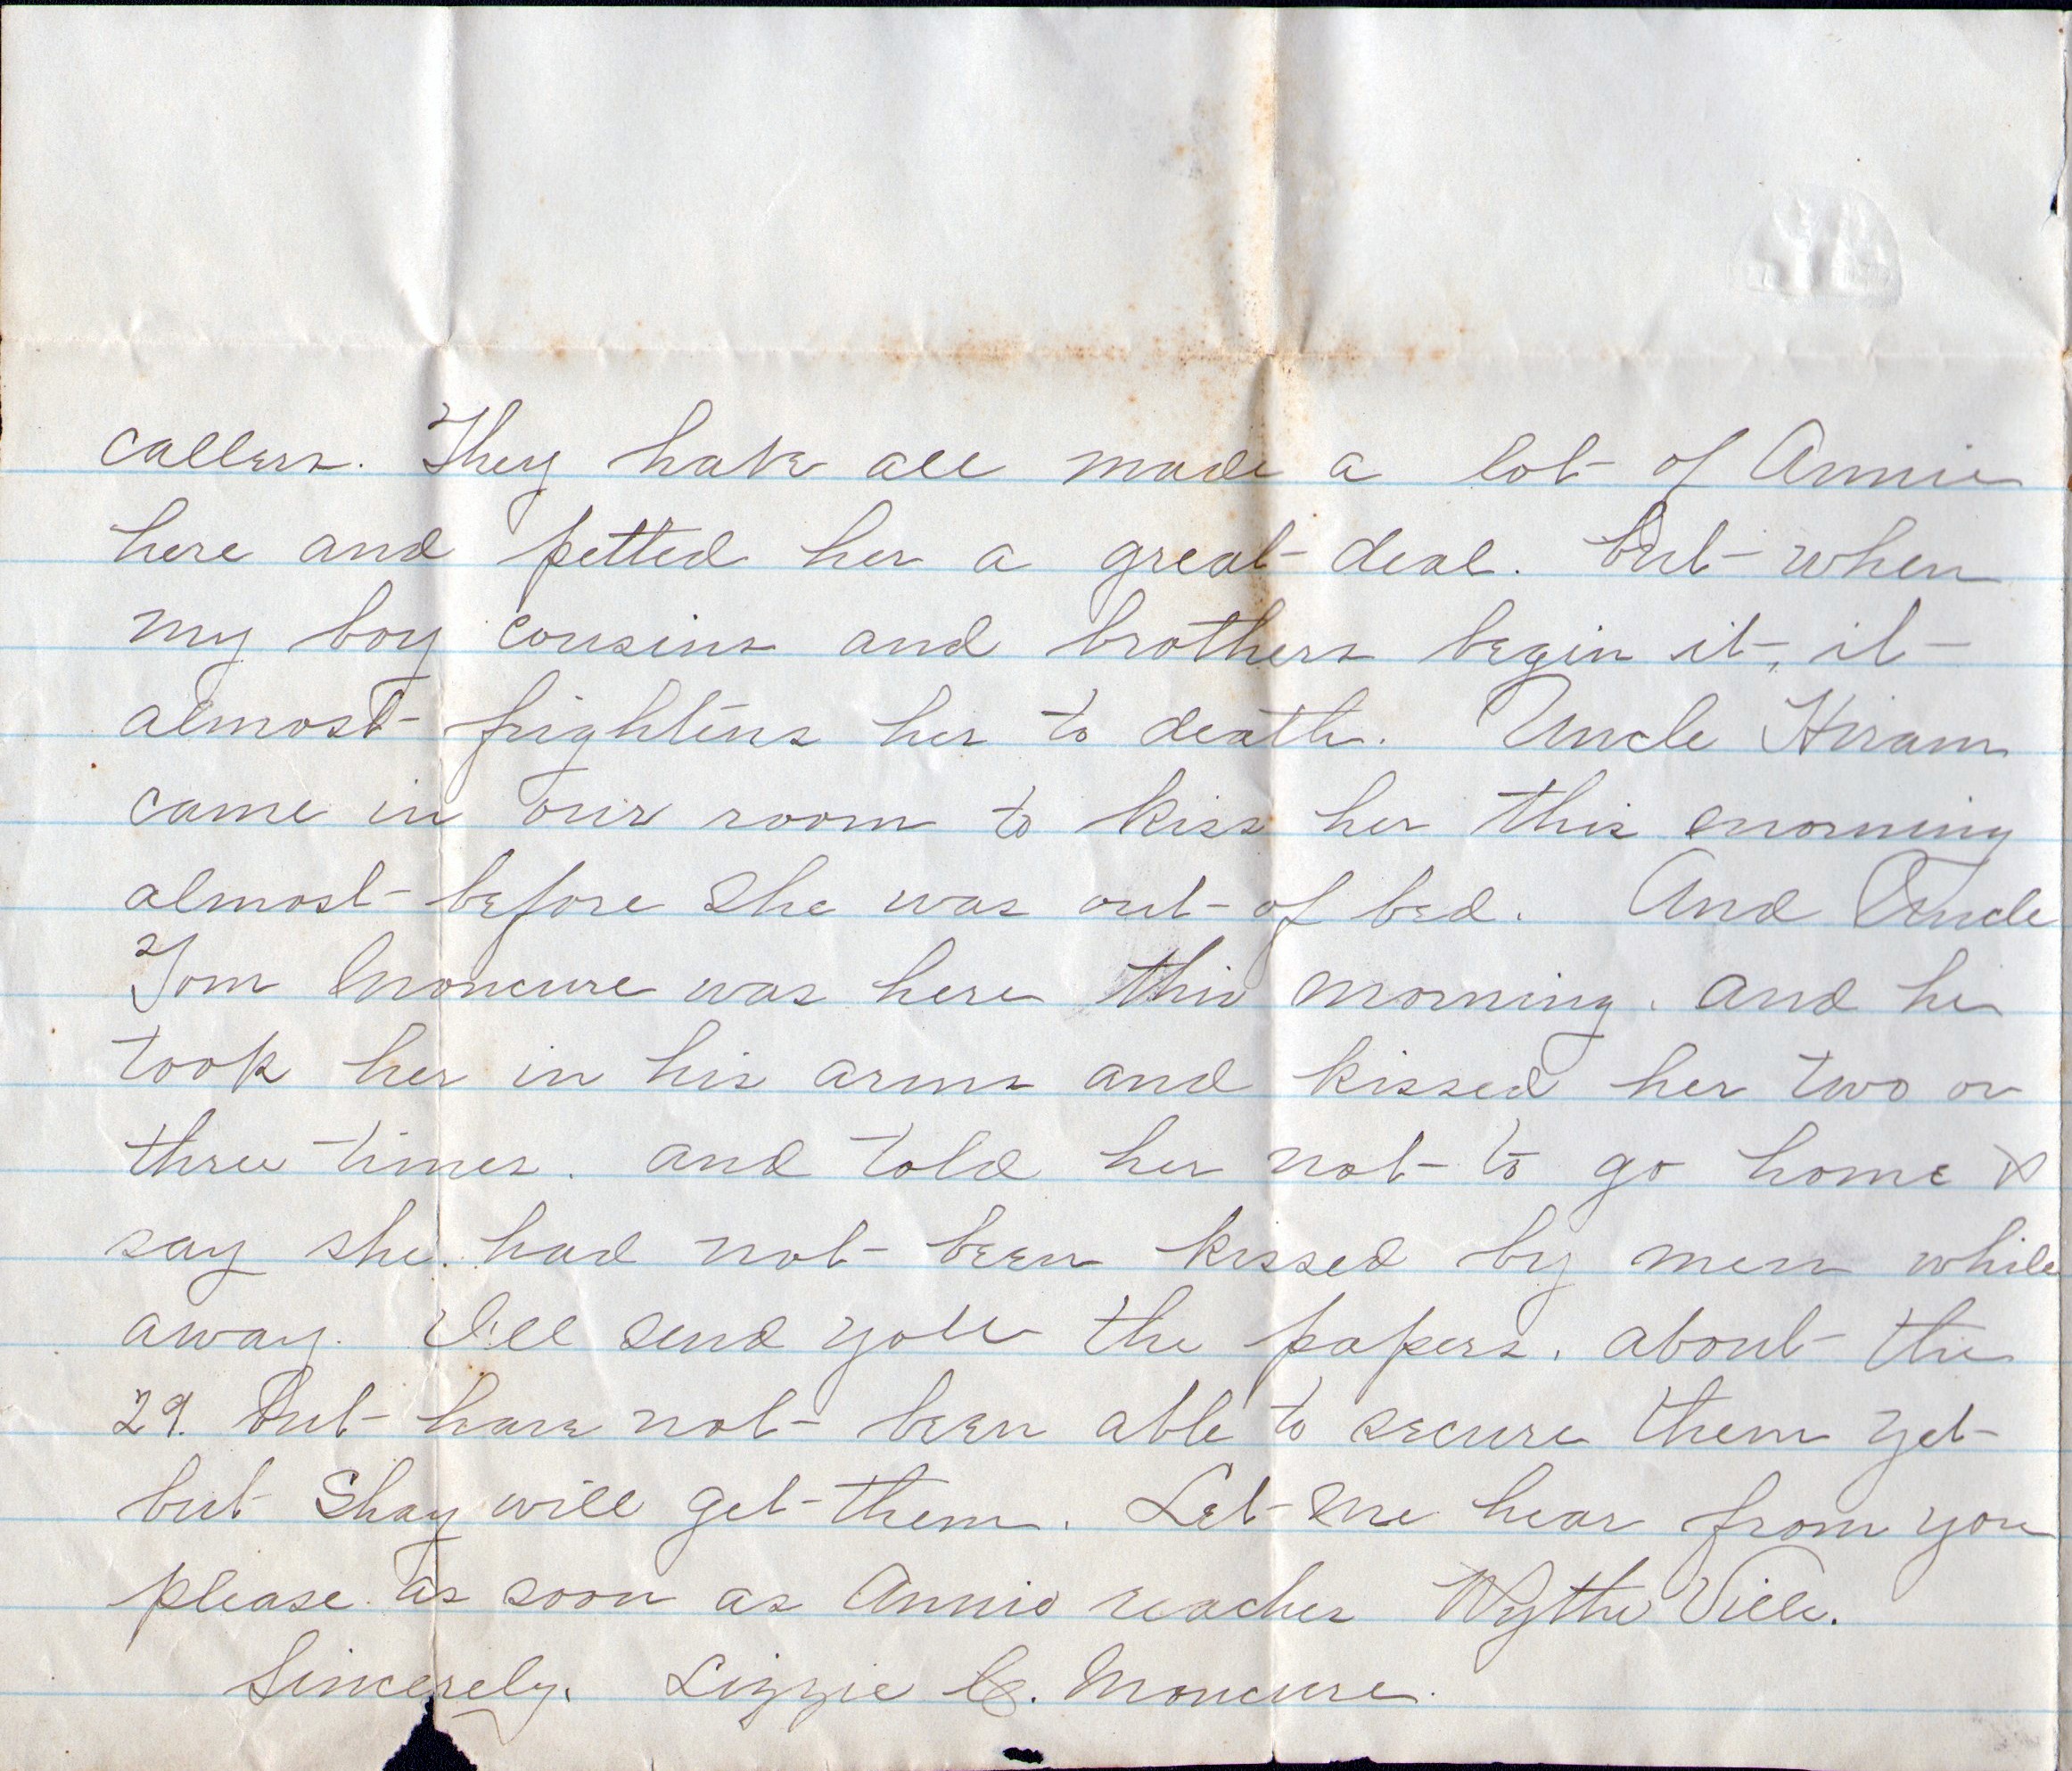 callers. They have all made a lot of Annie
here and petted her a great deal. But when
my boy cousins and brothers begin it, it
almost frightens her to death. Uncle Hiram
came in our room to kiss her this morning
almost before she was out of bed. And Uncle
Tom Moncure was here this morning. and he
took her in his arms and kissed her two or
three times. and told her not to go home &
say she had not been kissed by men while
away. I'll send you the papers. about the
29. But have not been able to secure them yet
but Shay will get them. Let me hear from you
please as soon as Annie reaches Wythe Ville.
Sincerely. Lizzie C. Moncure.